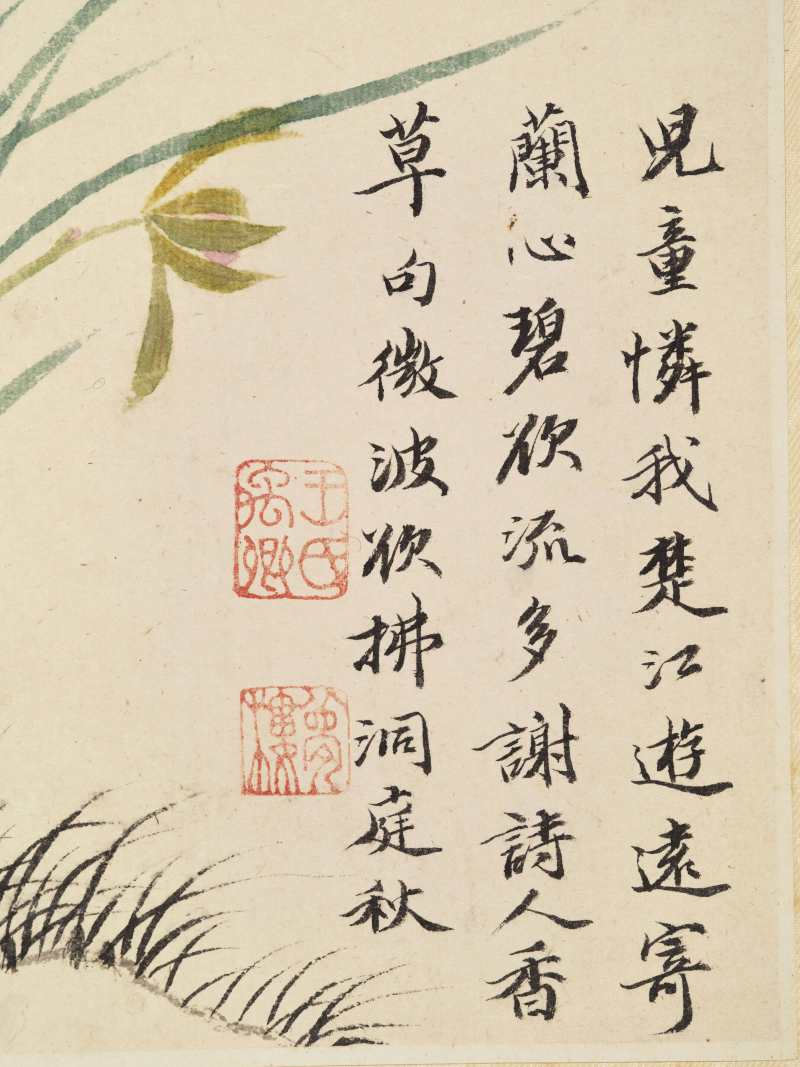 兒童憐我楚江遊遠寄
蘭心碧欲流多謝詩人香
草句微波欲拂洞庭秋
王氏禹卿
夢樓